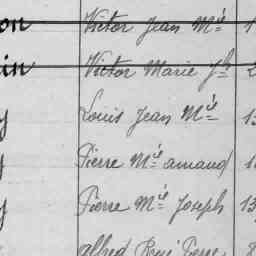 on Victor Jean Mie 1
in Victor Marie Jh 2
y Louis Jean Mie 13
y Pierre Mie arnaud 1
y Pierre Mie Joseph 13
alfred René Pierre 8